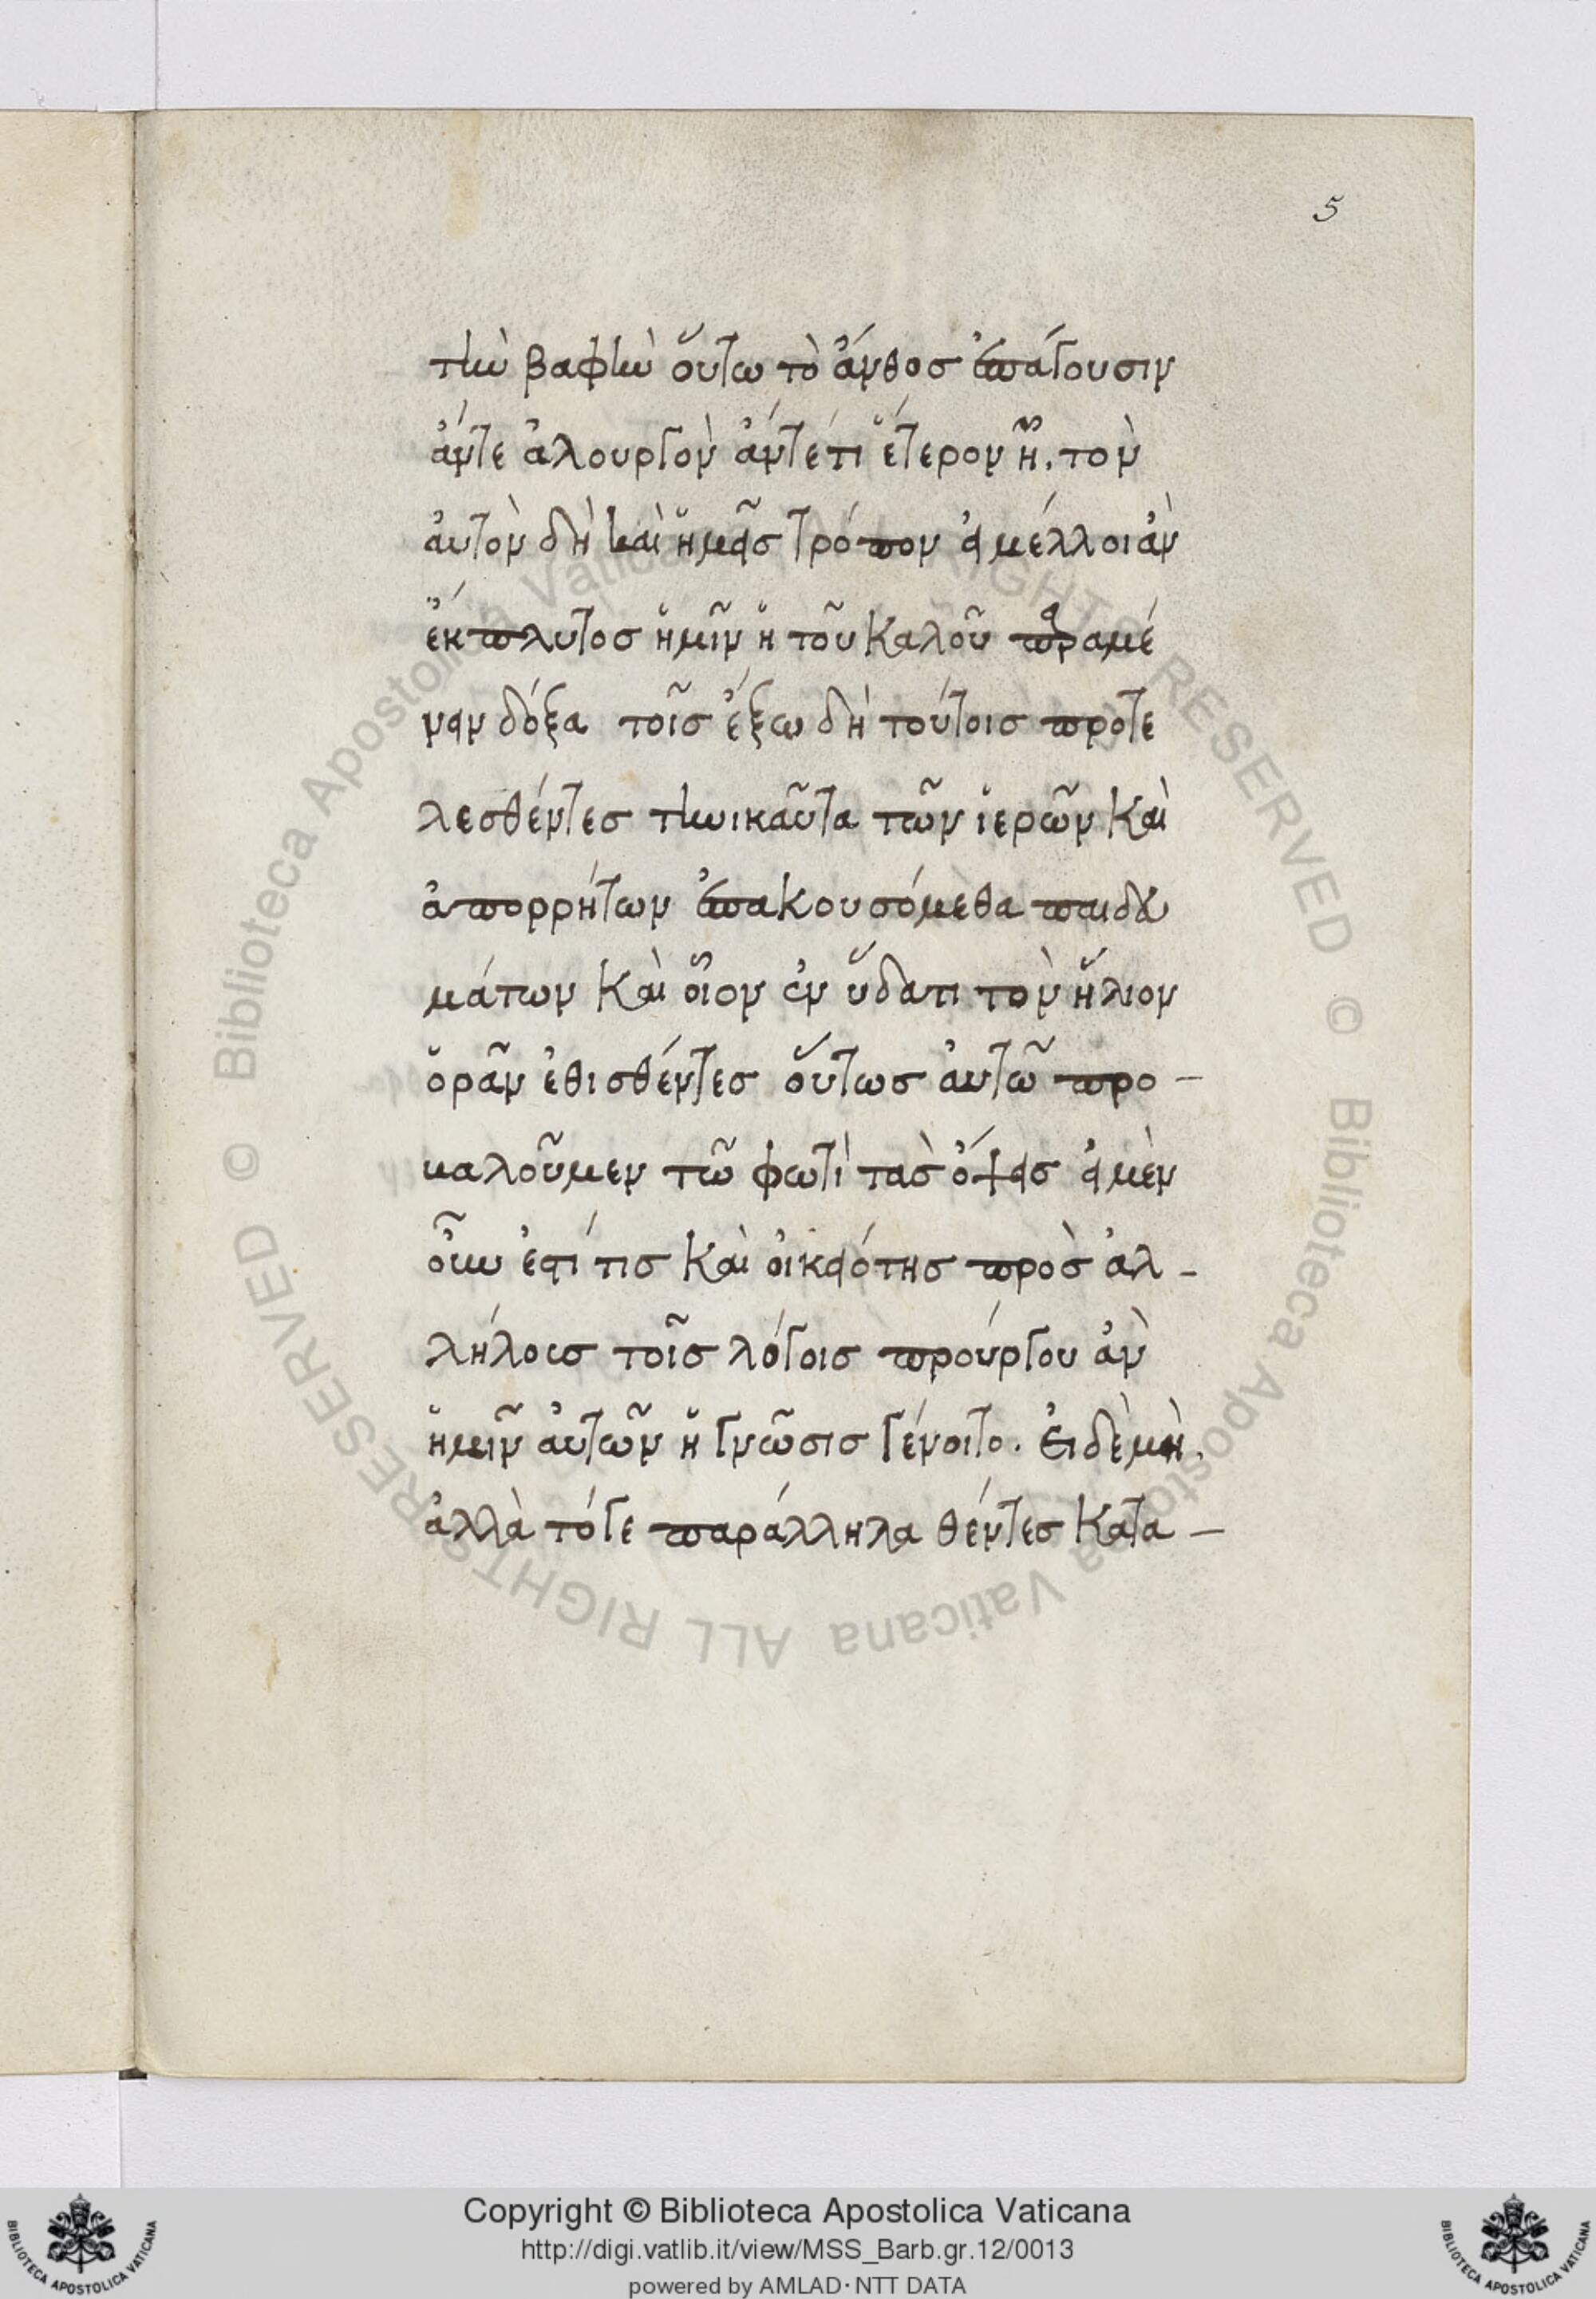 5
τὴν βαφὴν οὕτω τὸ ἄνθος ἐπάγουσιν
ἄντε ἁλουργὸν ἄντέτι ἕτερον ἦ. τὸν
ἀυτὸν δὴ καὶ ἡμᾶς τρόπον ἐι μέλλοι ἀν
ἔκπλυτος ἡμῖν ἡ τοῦ καλοῦ παραμέ
νειν δόξα τοῖς ἔξω δὴ τούτοις προτε
λεσθέντες τηνικαῦτα τῶν ἱερῶν καὶ
ἀπορρήτων ἐπακουσόμεθα παιδευ
μάτων καὶ οἷον ἐν ὕδατι τὸν ἥλιον
ὁρᾶν ἐθισθέντες οὕτως ἀυτῶ προ-
καλοῦμεν τῶ φωτὶ τὰς ὄψεις ἐι μὲν
οὖν ἐστί τις καὶ οἰκειότης πρὸς ἀλ-
λήλους τοῖς λόγοις προύργου ἀν
ἡμῖν ἀυτῶν ἡ γνῶσις γένοιτο. Ἐι δὲ μὴ.
ἀλλὰ τόγε παράλληλα θέντες κατα-
Copyright © Biblioteca Apostolica Vaticana
http://digi.vatlib.it/view/MSS_Barb.gr.12/0013
powered by AMLAD·NTT DATA
BIBLIOTECA APOSTOLICA VATICANA
BIBLIOTECA APOSTOLICA VATICANA
© Biblioteca Apostolica Vaticana ALL RIGHTS RESERVED
© Biblioteca Apostolica Vaticana ALL RIGHTS RESERVED